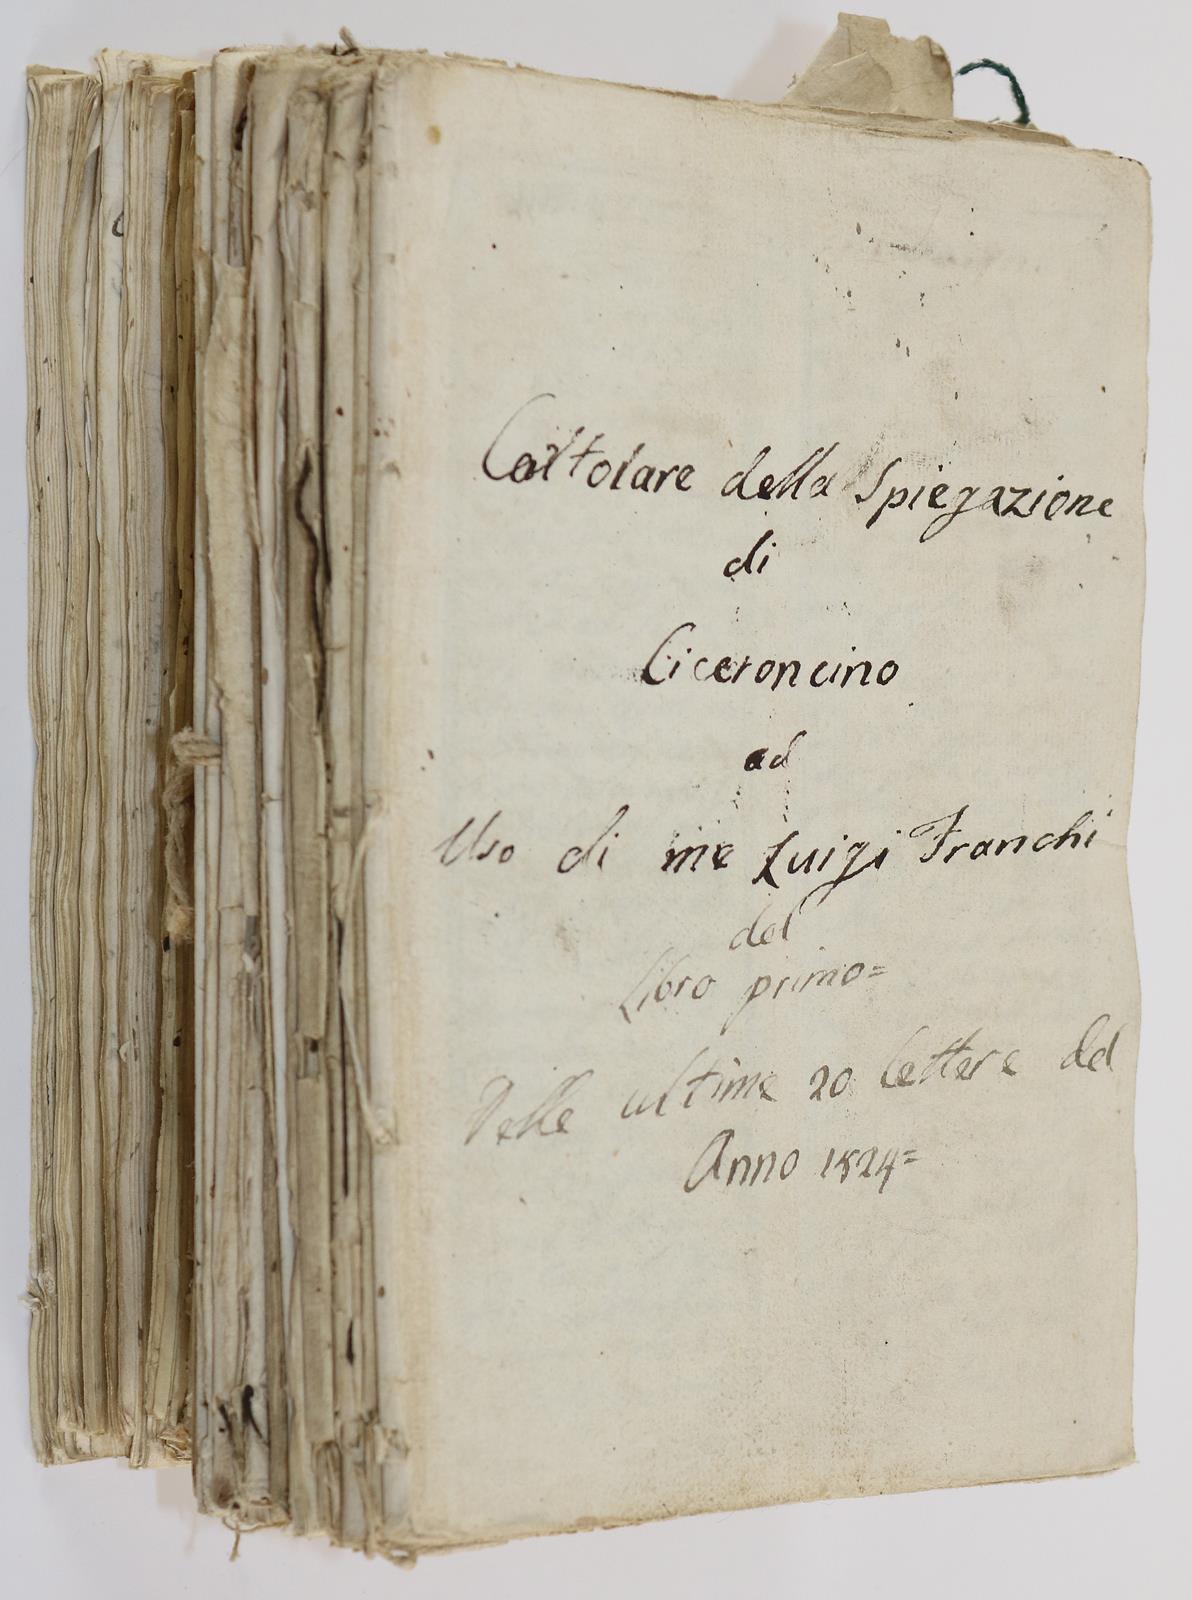 Cartolare della Spiegazione
di
Ciceroncino
ad
Uso di me Luigi Franchi
del
Libro primo=
Delle ultime 20 lettere del
Anno 1824=